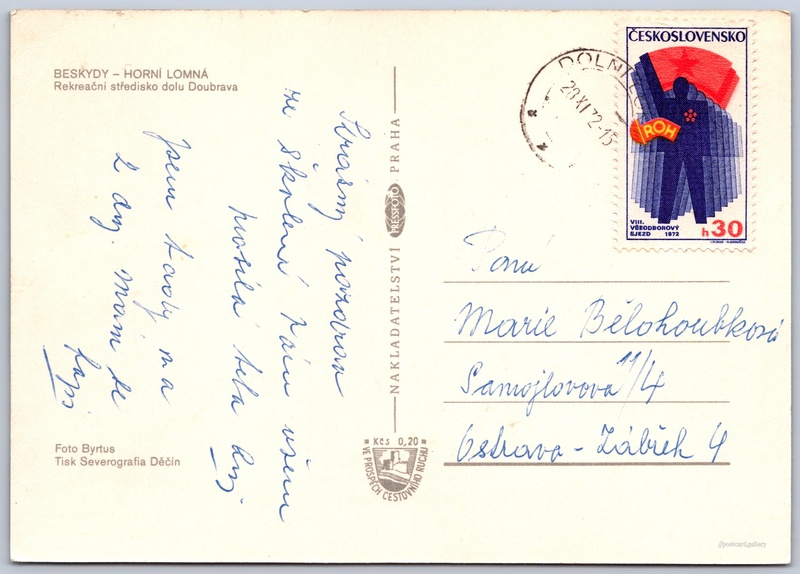 BESKYDY – HORNÍ LOMNÁ
Rekreační středisko dolu Doubrava
Krásný pozdrav
ze školení Vám všem
posílá teta
Jsem tady na
2 dny. Mám se
fajn
Foto Byrtus
Tisk Severografia Děčín
NAKLADATELSTVÍ PRESSFOTO PRAHA
Kčs 0,20
VE PROSPĚCH CESTOVNÍHO RUCHU
DOLNÍ
28.XI.72-15
ČESKOSLOVENSKO
ROH
VIII.
VŠEODBOROVÝ
SJEZD 1972
h 30
Paní
Marie Bělohoubková
Samojlovova 11/4
Ostrava-Zábřeh 4
postcard.gallery